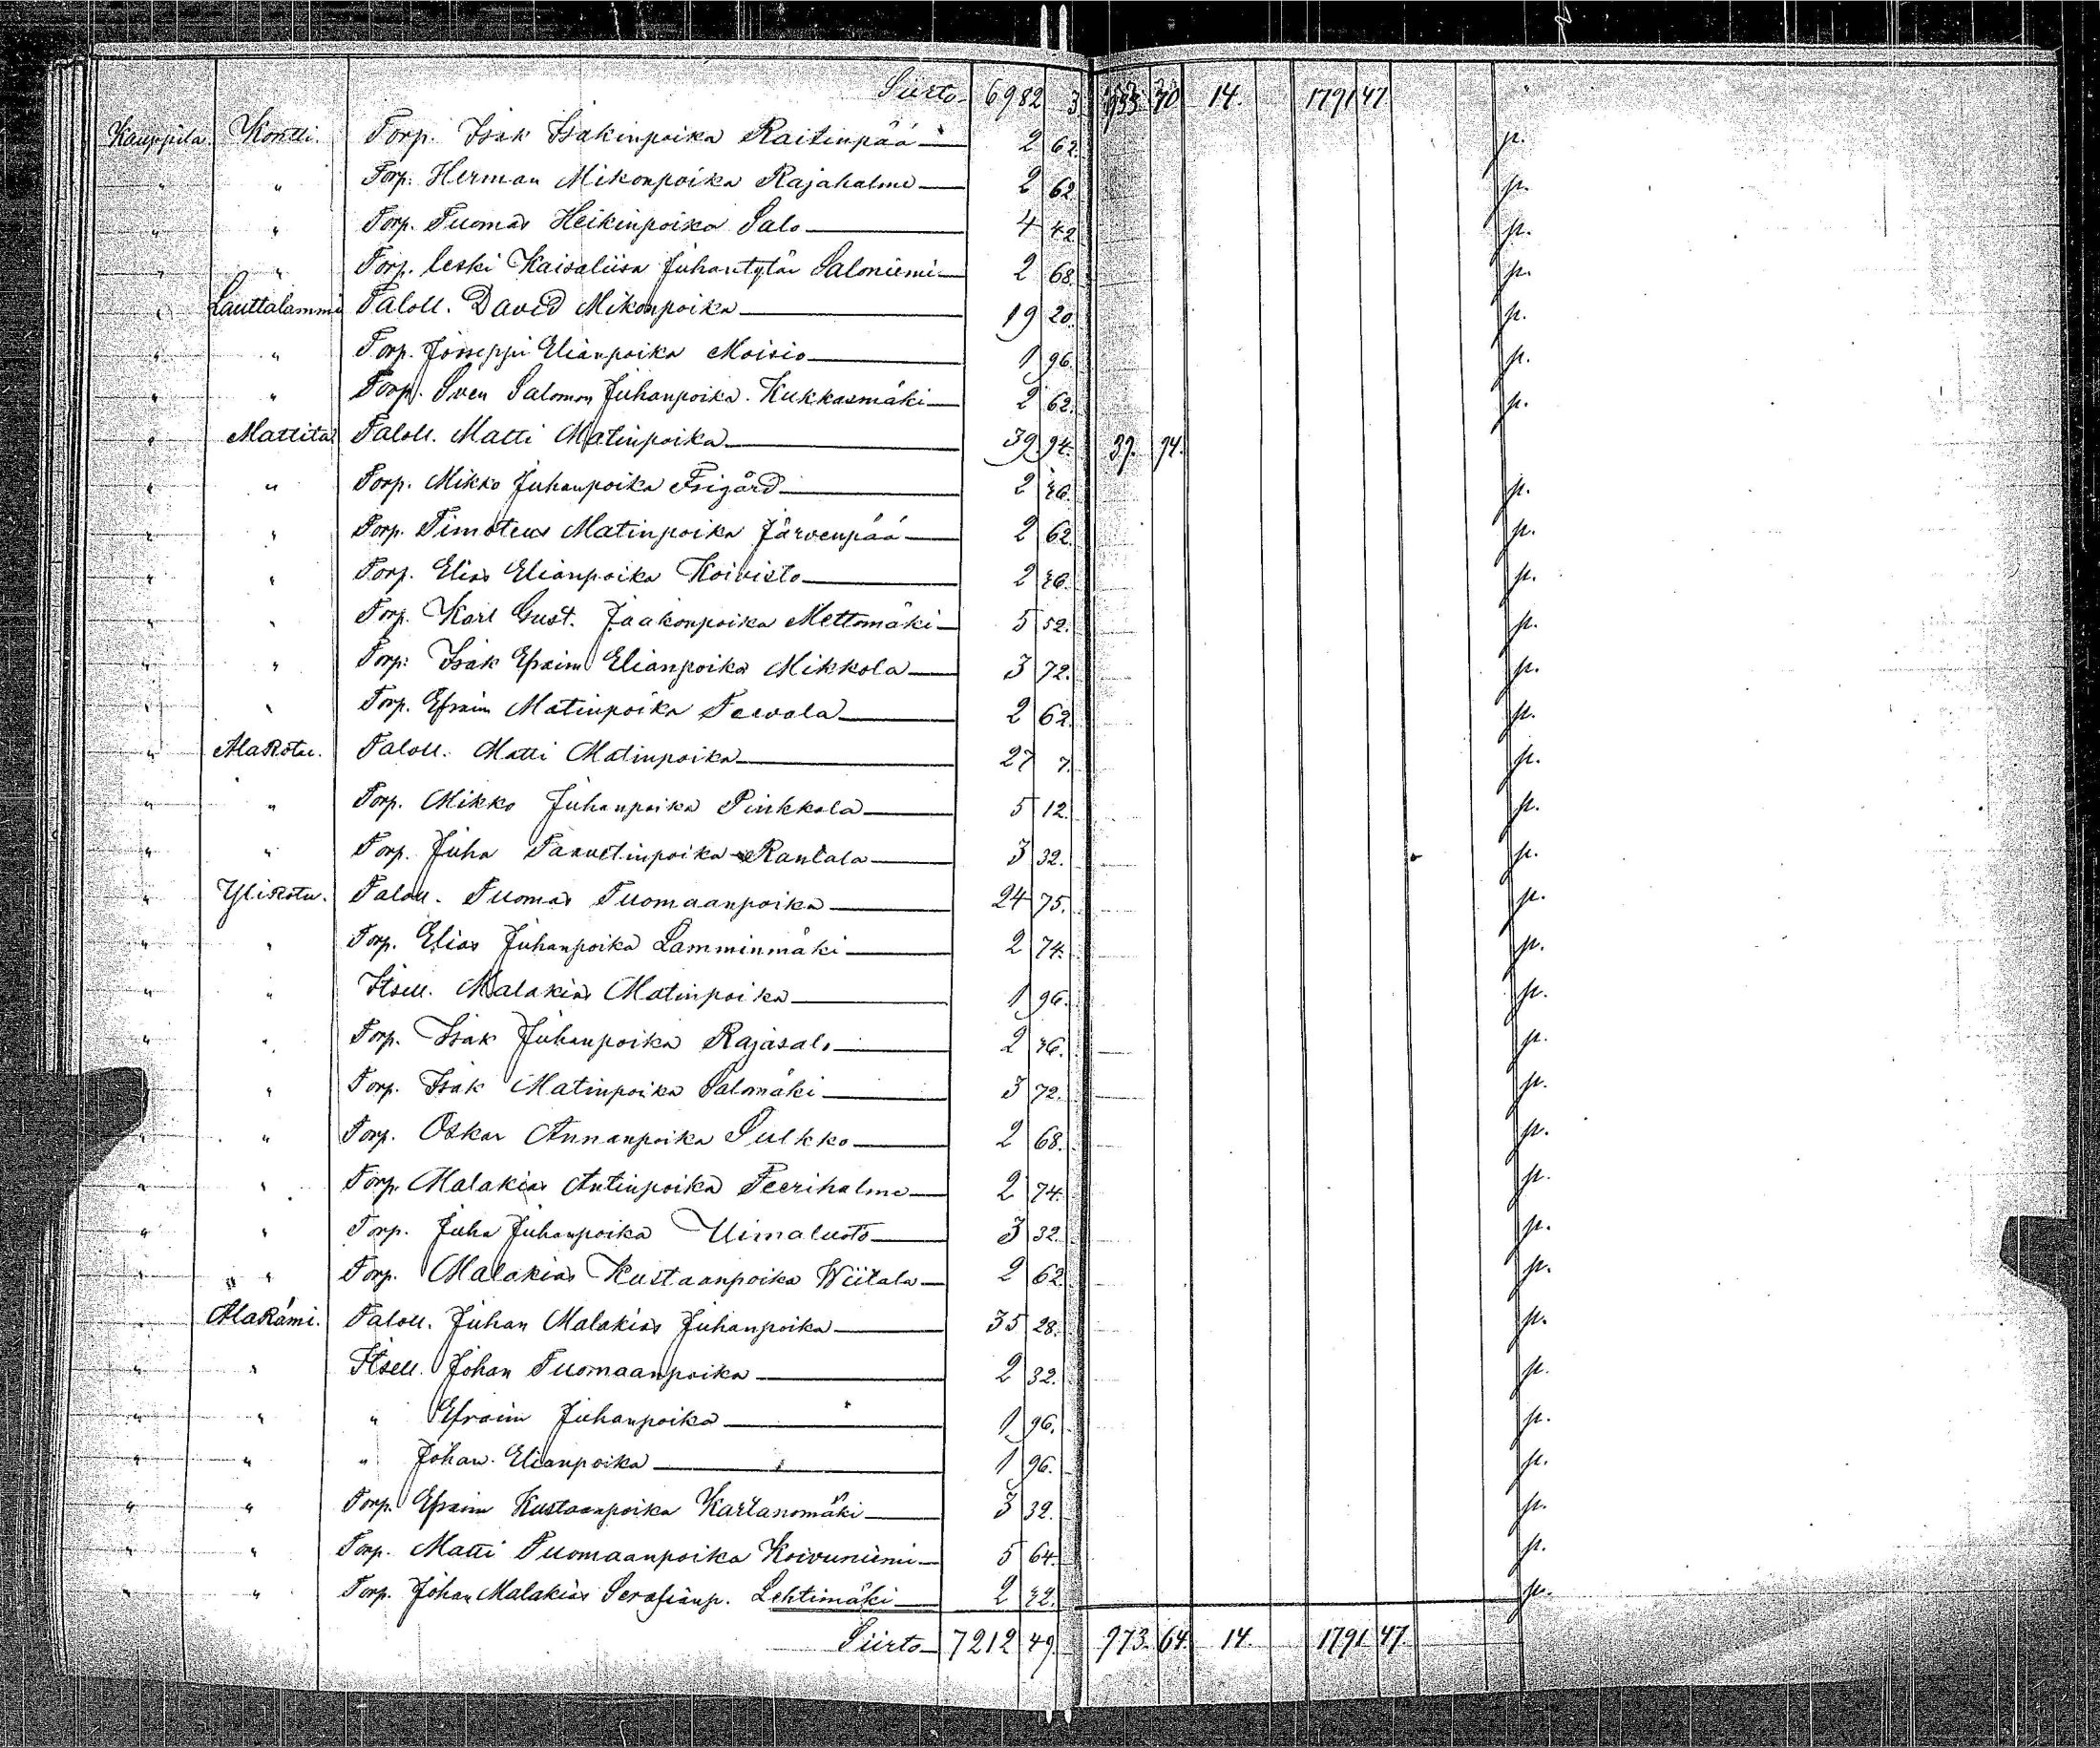 Siirto 6982 3 933 70 14. 1791 47
Kauppila. Kontti. Torp. Isak Isakinpoika Raitinpää 2 62. p.
" " Torp. Herman Mikonpoika Rajahalme 2 62 p.
" " Torp. Tuomas Heikinpoika Salo 4 42 p.
" " Torp. leski Kaisaliisa Juhantytär Saloniemi 2 68 p.
" Lauttalammi Taloll. David Mikonpoika 19 20. p.
" " Torp. Jooseppi Elianpoika Moisio 1 96. p.
" " Torp. Sven Salomon Juhanpoika Kukkasmäki 2 62. p.
" Mattila Taloll. Matti Matinpoika 39 94. 39. 94.
" " Torp. Mikko Juhanpoika Frigård 2 26. p.
" " Torp. Timoteus Matinpoika Järvenpää 2 62. p.
" " Torp. Elias Elianpoika Koivisto 2 26. p.
" " Torp. Karl Gust. Jaakonpoika Mettomäki 5 52. p.
" " Torp. Isak Efraim Elianpoika Mikkola 3 72. p.
" " Torp. Efraim Matinpoika Teevala 2 62. p.
" AlaKotu. Taloll. Matti Matinpoika 27 7. p.
" " Torp. Mikko Juhanpoika Pinkkala 5 12. p.
" " Torp. Juha Taavetinpoika Rantala 3 32. p.
" YliKotu. Taloll. Tuomas Tuomaanpoika 24 75. p.
" " Torp. Elias Juhanpoika Lamminmäki 2 74. p.
" " Itsell. Malakias Matinpoika 1 96. p.
" " Torp. Isak Juhanpoika Rajasalo 2 26. p.
" " Torp. Isak Matinpoika Salomäki 3 72. p.
" " Torp. Oskar Annanpoika Sulkko 2 68. p.
" " Torp. Malakias Antinpoika Teerihalme 2 74. p.
" " Torp. Juha Juhanpoika Uimaluoto 3 32. p.
" " Torp. Malakias Kustaanpoika Wiitala 2 62 p.
" AlaRämi. Taloll. Juhan Malakias Juhanpoika 35 28. p.
" " Itsell. Johan Tuomaanpoika 2 32. p.
" " " Efraim Juhanpoika 1 96. p.
" " " Johan Elianpoika 1 96. p.
" " Torp. Efraim Kustaanpoika Kartanomäki 3 32. p.
" " Torp. Matti Tuomaanpoika Koivuniemi 5 64. p.
" " Torp. Johan Malakias Serafianp. Lehtimäki 2 32. p.
Siirto 7212 49. 973. 64. 14. 1791 47.